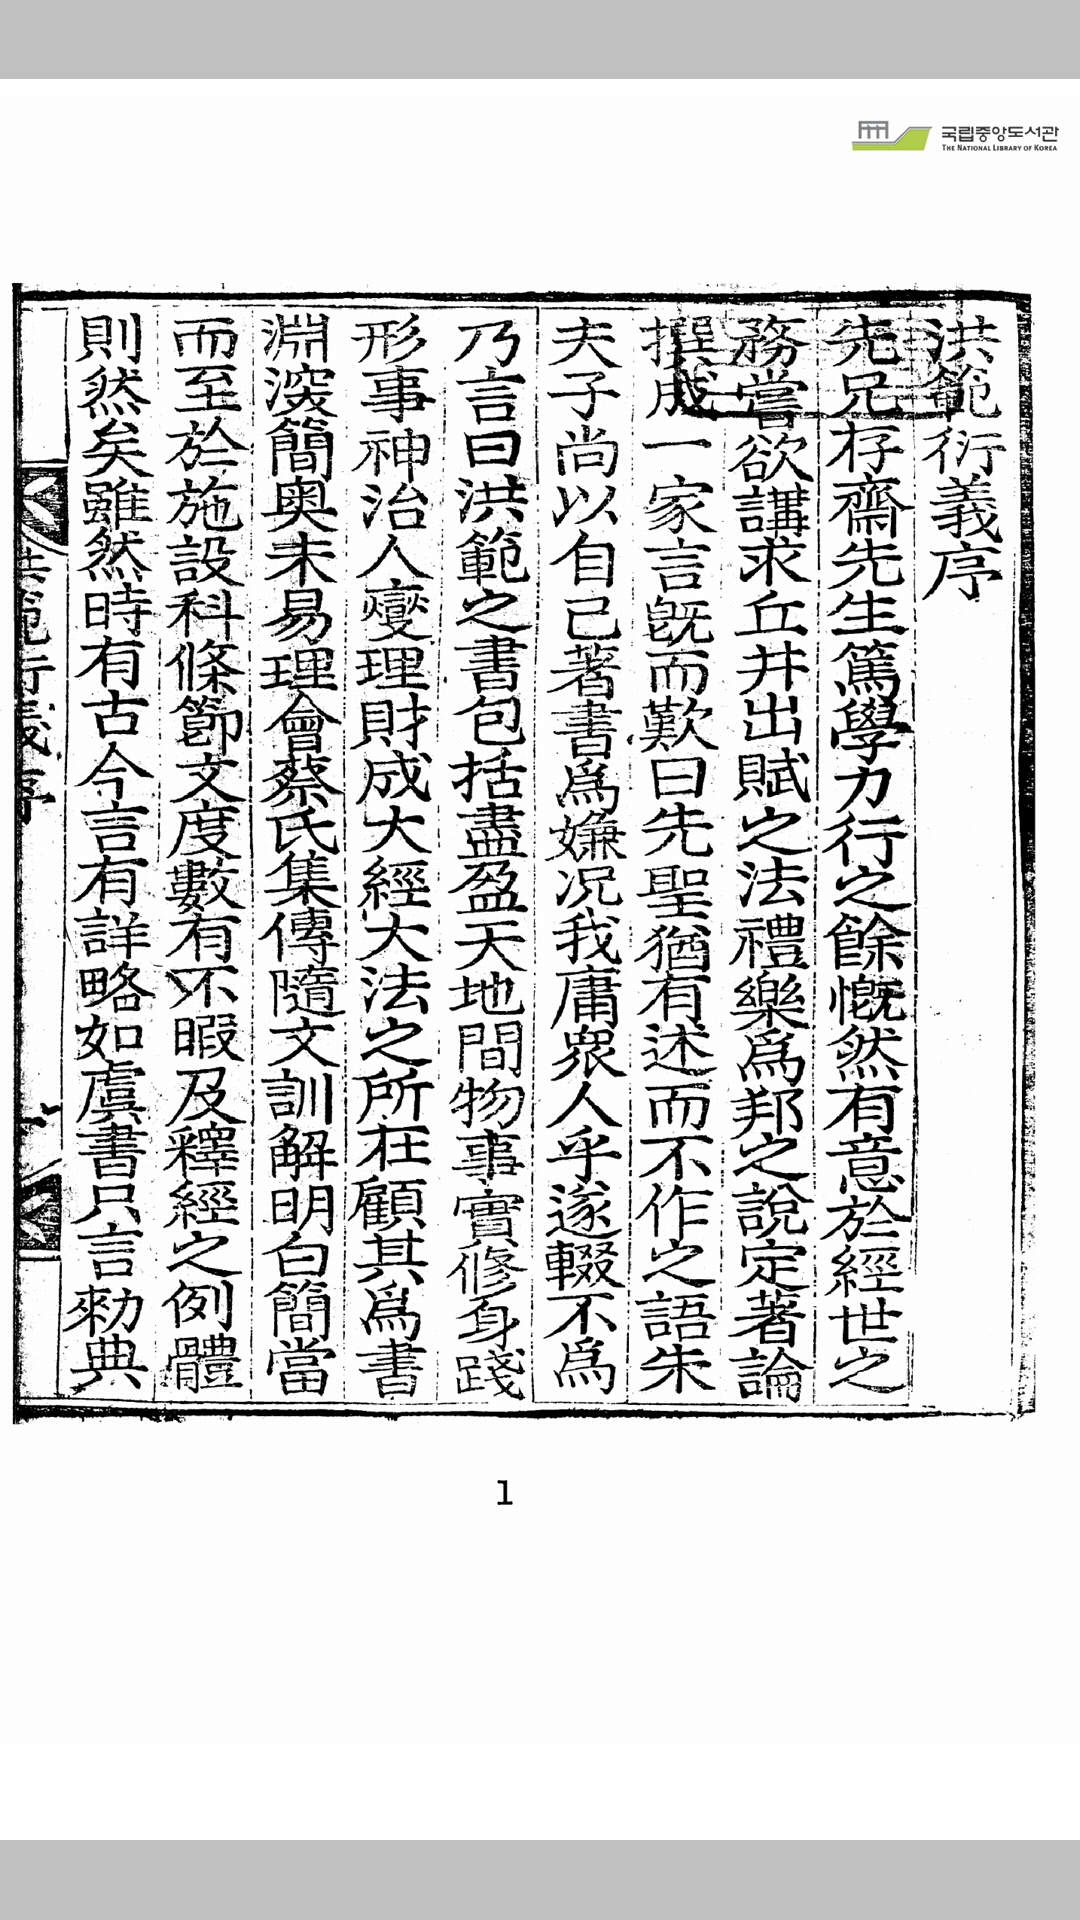 국립중앙도서관
THE NATIONAL LIBRARY OF KOREA
洪範衍義序
先兄存齋先生篤學力行之餘慨然有意於經世之
務嘗欲講求丘井出賦之法禮樂爲邦之說定著論
撰成一家言旣而歎曰先聖猶有述而不作之語朱
夫子尚以自己著書爲嫌况我庸衆人乎遂輟不爲
乃言曰洪範之書包括盡盈天地間物事實修身踐
形事神治人燮理財成大經大法之所在顧其爲書
淵深簡奧未易理會蔡氏集傳隨文訓解明白簡當
而至於施設科條節文度數有不暇及釋經之例體
則然矣雖然時有古今言有詳略如虞書只言勑典
洪範衍義序
一
1